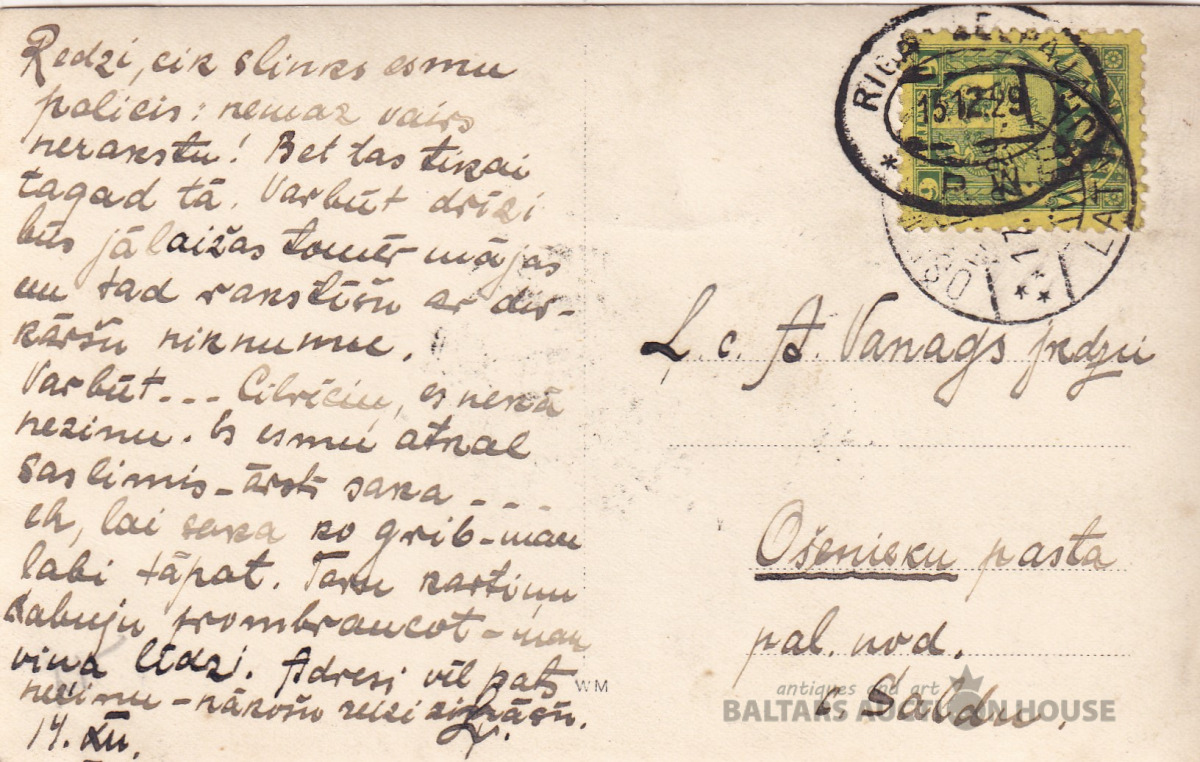 Redzi, cik slinks esmu
palicis: nemaz vairs
nerakstu! Bet tas tikai
tagad tā. Varbūt drīzi
būs jālaižas tomēr mājās
un tad rakstīšu ar div-
kāršu niknumu.
Varbūt... Cilvēciņ, es nekā
nezinu. Es esmu atkal
saslimis – ārsts saka ...
eh, lai saka ko grib – man
labi tāpat. Tavu kartiņu
dabuju prombraucot – man
viņa līdzi. Adresi vēl pats
nezinu – nākošu reizi ziņāšu.
14. XII.
L.
RIGA LEEPAJA
15.12.29
LATVIJA
L. c. A. Vanags jkdzei
Ošenieku pasta
pal. nod.
c. Saldu.
WM
antiques and art
BALTARS AUCTION HOUSE